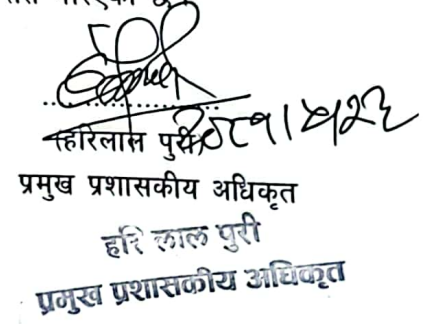 (हरिलाल पुरी)
प्रमुख प्रशासकीय अधिकृत
हरि लाल पुरी
प्रमुख प्रशासकीय अधिकृत